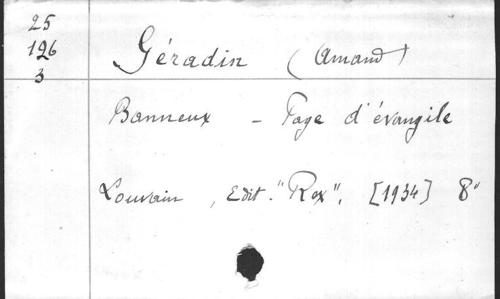 25
126
3
Géradin (Amand)
Banneux - Page d'évangile
Louvain, Edit. "Rex", [1934] 8°